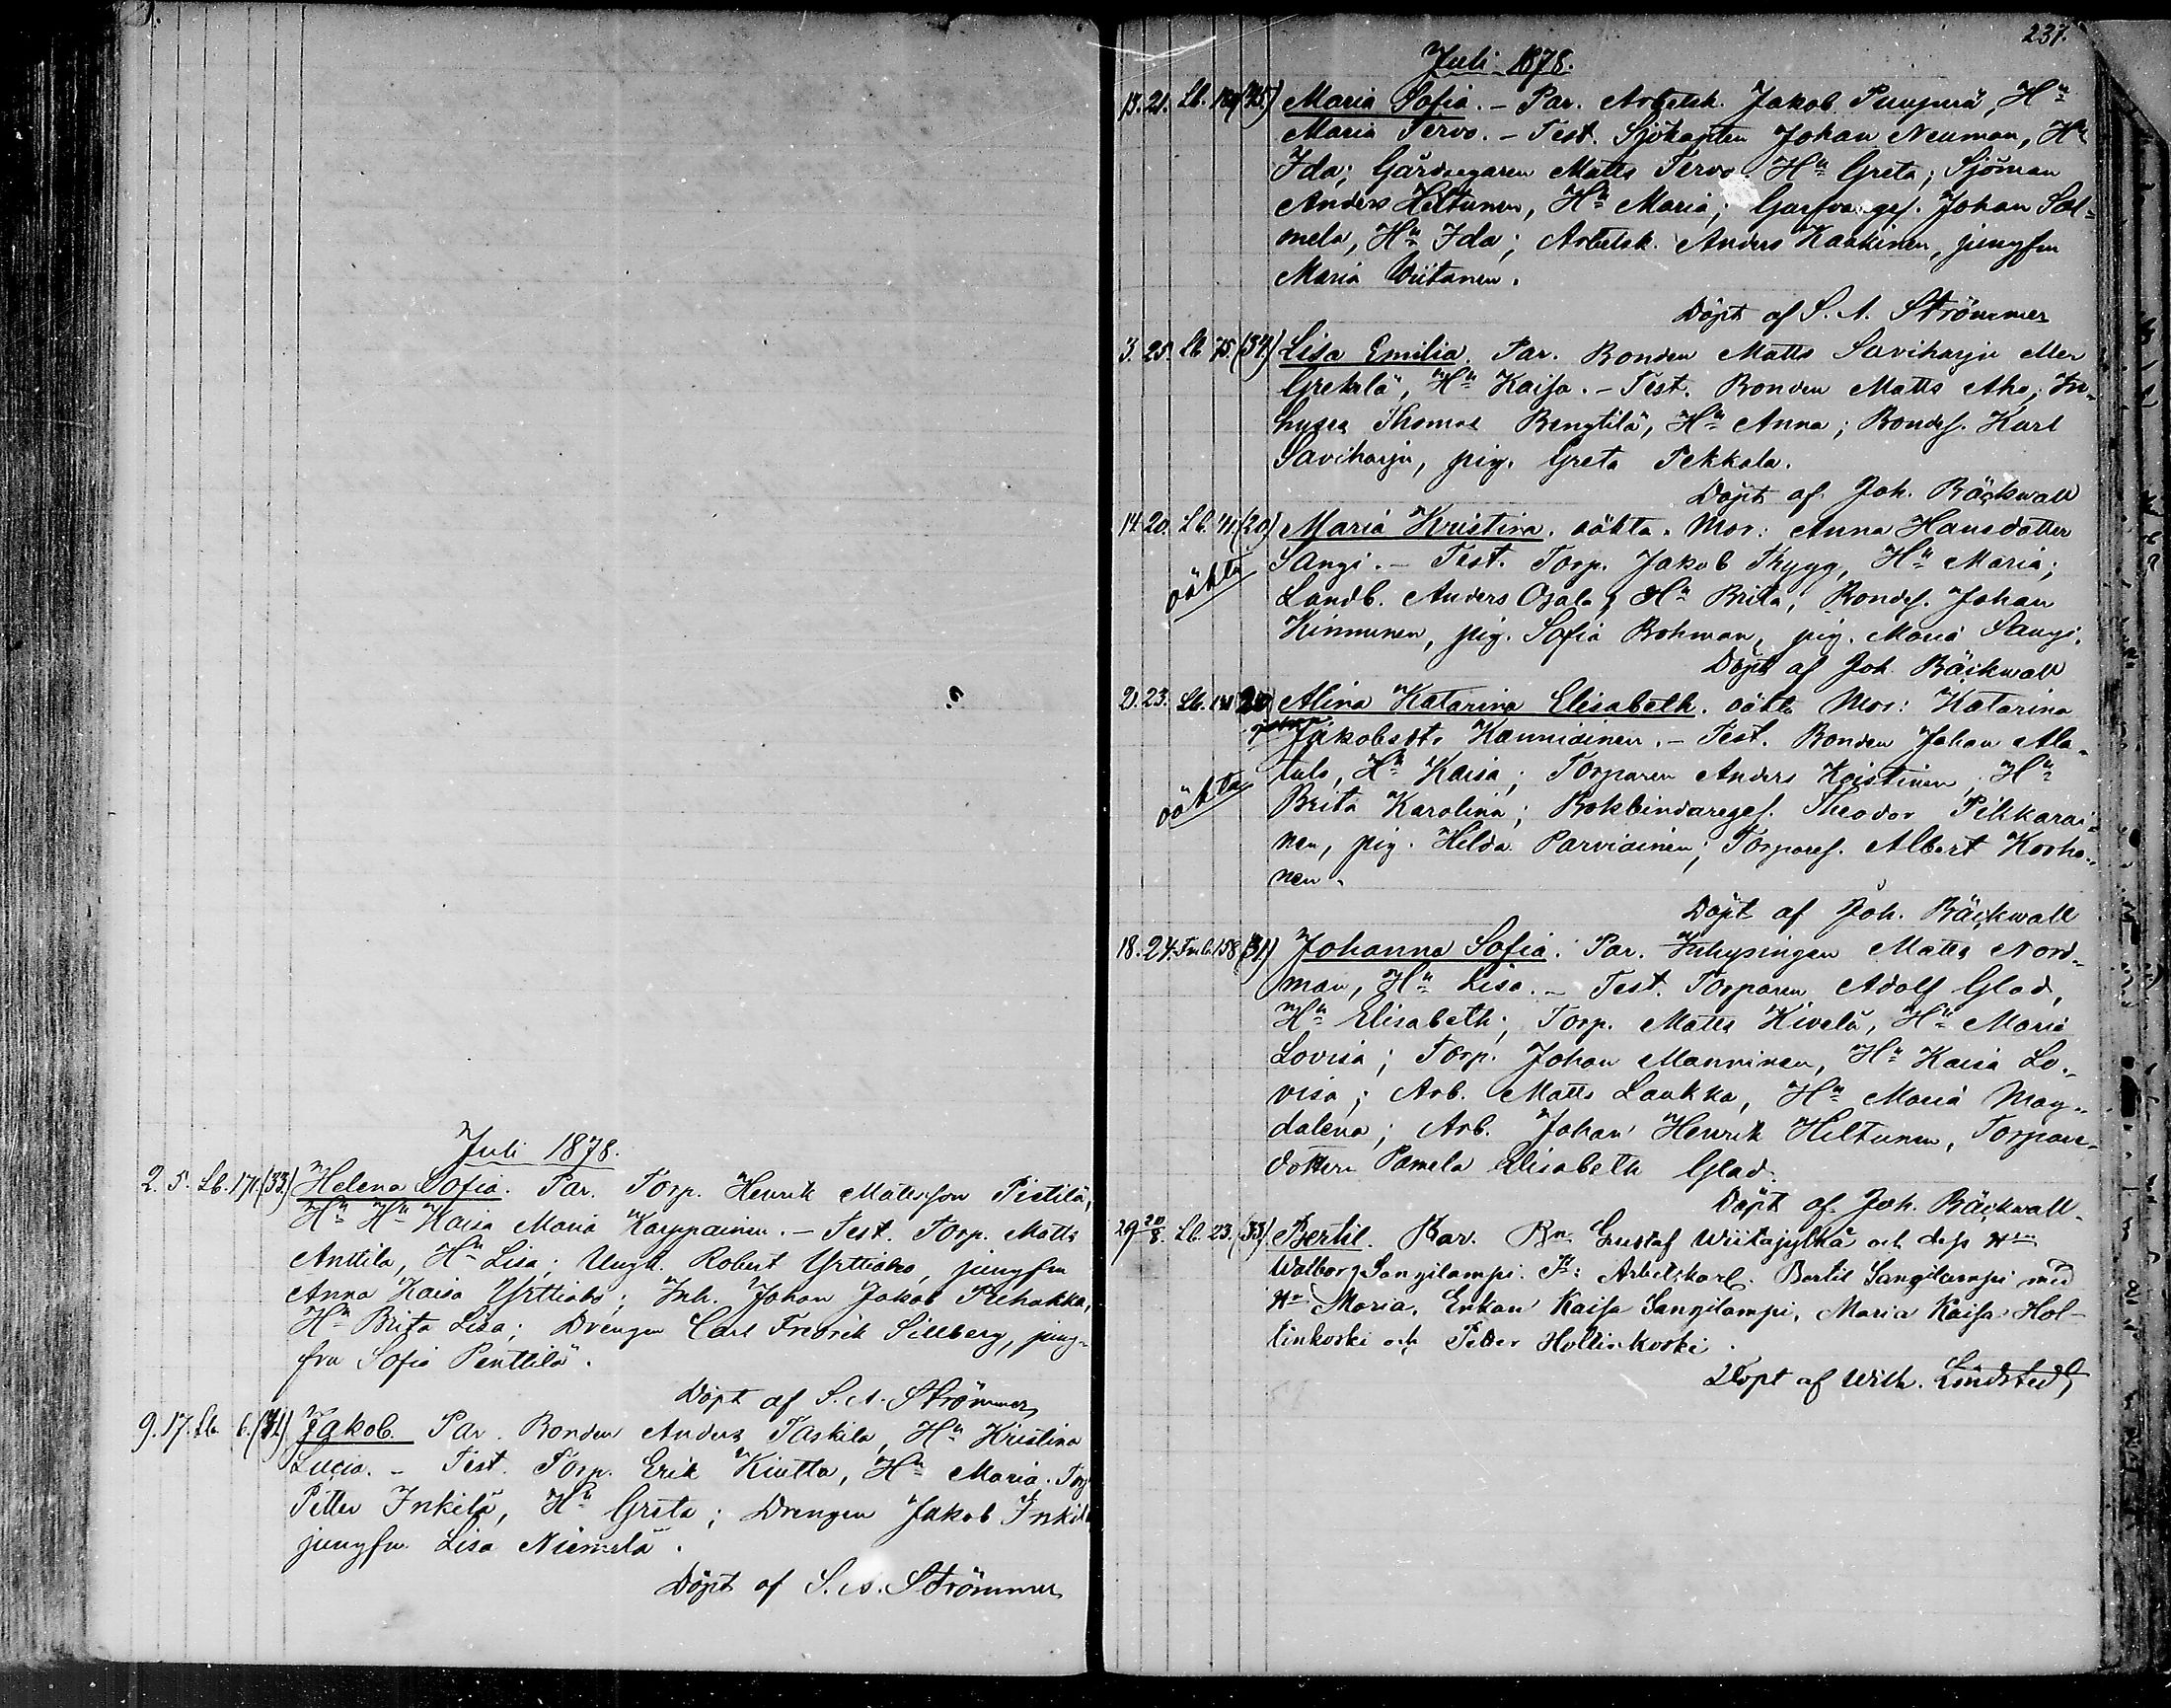 Juli 1878.
2. 5. Lb. 171. (33.) Helena Sofia. Par. Torp. Henrik Mattsson Pietilä,
Hu Hu Kaisa Maria Karppainen. - Test. Torp. Matts
Anttila, Hu Lisa; Ungk. Robert Yrttiaho, jungfru
Anna Kaisa Yrttiaho; Inh. Johan Jakob Piehakka,
Hu Brita Lisa; Drengen Carl Fredrik Sillberg, jung-
fru Sofia Penttilä.
Döpt af S. A. Strömmer
9. 17. Lb. 6. (41.) Jakob. Par. Bonden Anders Taskila, Hu Kristina
Lucia. - Test. Torp. Erik Kiutta, Hu Maria; Torp
Petter Inkilä, Hu Greta; Drengen Jakob Inkilä
jungfru Lisa Niemelä.
Döpt af S. A. Strömmer
237.
Juli 1878.
13. 21. Lb. (45.) Maria Sofia. - Par. Arbetsk. Jakob Puuperä, Hu
Maria Tervo. - Test. Sjökapten Johan Neuman, Hu
Ida; Gårdsegaren Matts Tervo Hu Greta; Sjöman
Anders Hiltunen, Hu Maria; Garfvaregs. Johan Sal-
mela, Hu Ida; Arbetsk. Anders Kaakinen, jungfru
Maria Wiitanen.
Döpt af S. A. Strömmer
3. 25. Lb. 75. (37.) Lisa Emilia. Par. Bonden Matts Saviharju eller
Grekelä, Hu Kaisa. - Test. Bonden Matts Aho; In-
hyses Thomas Bengtilä, Hu Anna; Bondes. Karl
Saviharju, pig. Greta Pekkala.
Döpt af Joh. Bäckwall
14. 20. Lb. 41. (20) Maria Kristina. oäkta. Mor: Anna Hansdotter
oäkta Sangi. - Test. Torp. Jakob Thygg, Hu Maria;
Landb. Anders Ojala, Hu Brita; Bondes. Johan
Kinnunen, pig. Sofia Bohman, pig. Maria Sangi.
Döpt af Joh. Bäckwall
21. 23. Lb. Alina Katarina Elisabeth. oäkta Mor: Katarina
Jakobsdtr Kanniainen. - Test. Bonden Johan Ala-
oäkta talo, Hu Kaisa; Torparen Anders Koistinen, Hu
Brita Karolina; Bokbindareges. Theodor Pikkarai-
nen, pig. Hilda Parviainen; Torpares. Albert Korho-
nen.
Döpt af Joh. Bäckwall
18. 24. 158 (31.) Johanna Sofia. Par. Inhysingen Matts Nord-
man, Hu Lisa. - Test. Torparen Adolf Glad,
Hu Elisabeth; Torp. Matts Kivelä, Hu Maria
Lovisa; Torp. Johan Manninen, Hu Kaisa Lo-
visa; Arb. Matts Laukka, Hu Maria Mag-
dalena; Arb. Johan Henrik Hiltunen, Torpare-
dottern Pamela Elisabeth Glad.
Döpt af Joh. Bäckwall.
29 20/8. Lb. 23. (33). Bertil. Par. Bn Gustaf Wiitajylhä och dess Hu
Walborg Sangilampi. T: Arbetskarl. Bertil Sangilampi med
Hu Maria, Enkan Kaisa Sangilampi, Maria Kaisa Hol-
tinkoski och Petter Holtinkoski.
Döpt af Wilh. Lindstedt